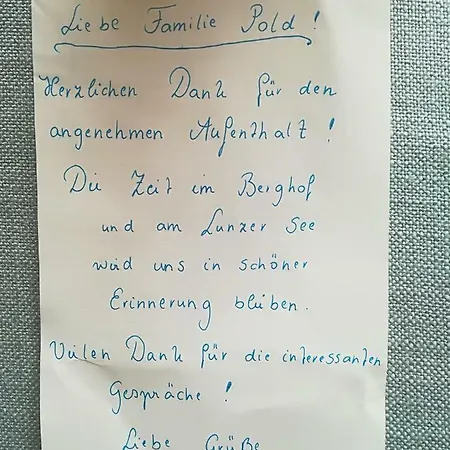 Liebe Familie Pold!
Herzlichen Dank für den
angenehmen Aufenthalt!
Die Zeit im Berghof
und am Lunzer See
wird uns in schöner
Erinnerung bleiben.
Vielen Dank für die interessanten
Gespräche!
Liebe Grüße